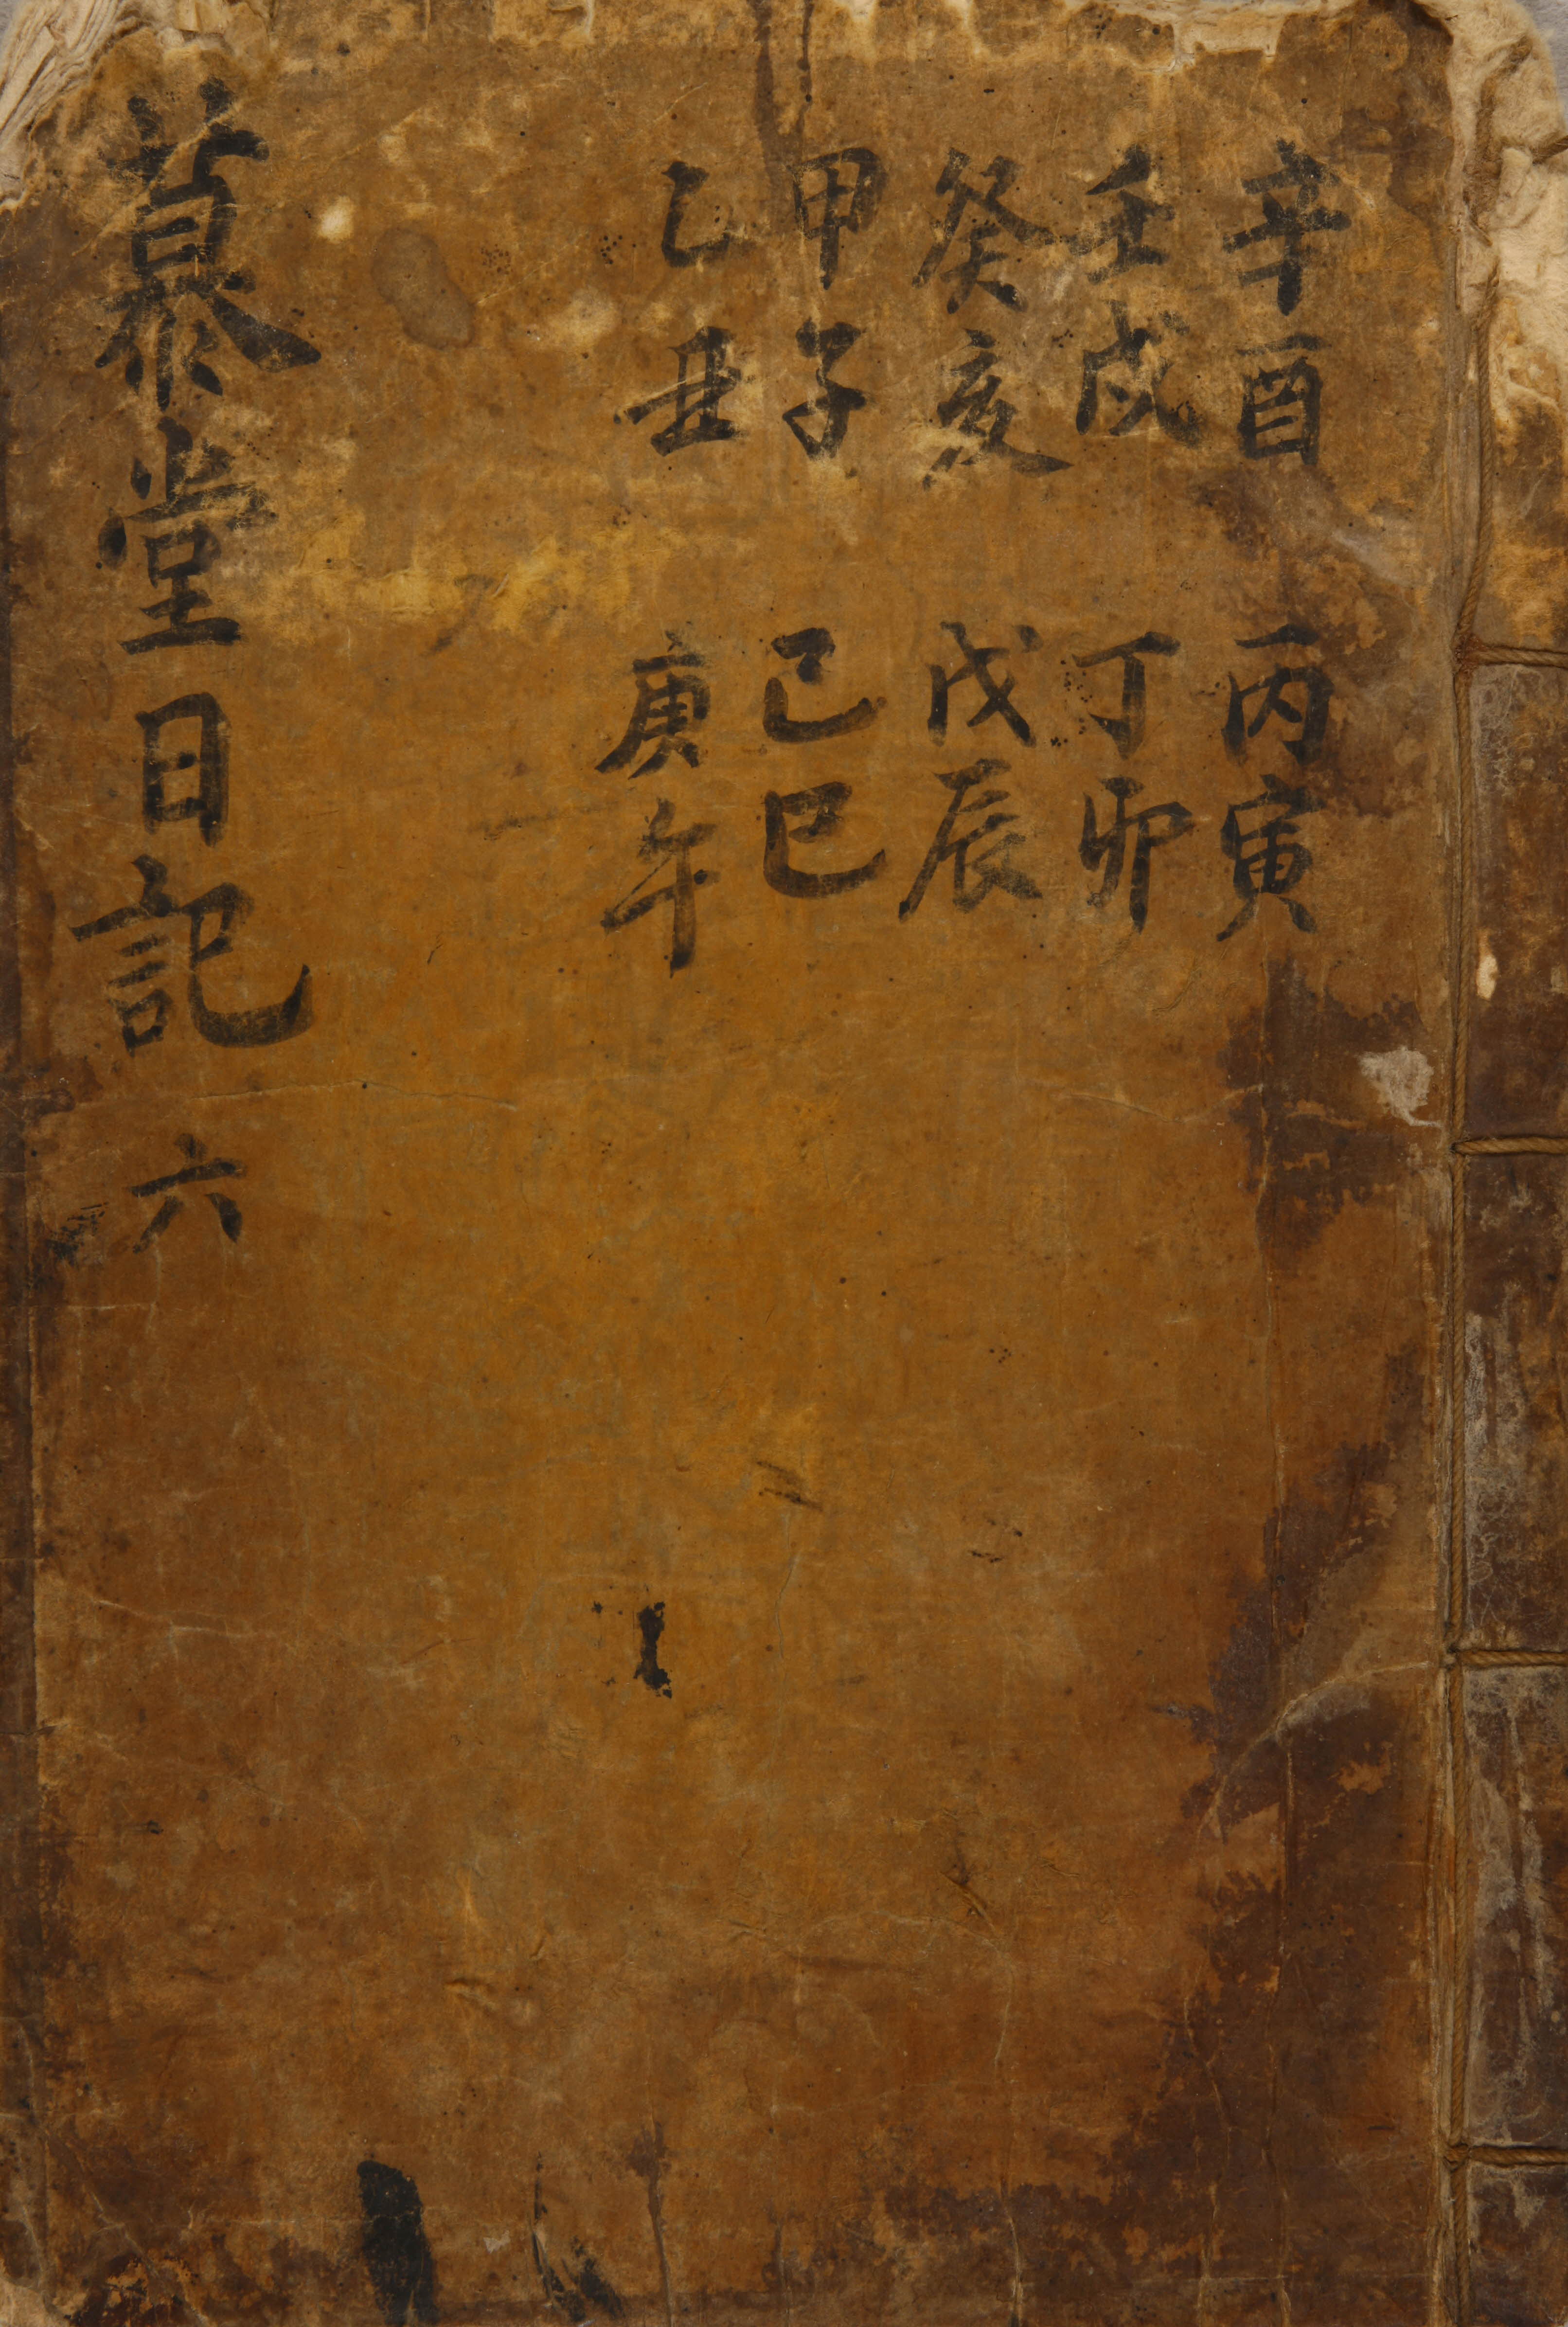 辛酉
壬戌
癸亥
甲子
乙丑
丙寅
丁卯
戊辰
己巳
庚午
慕堂日記 六